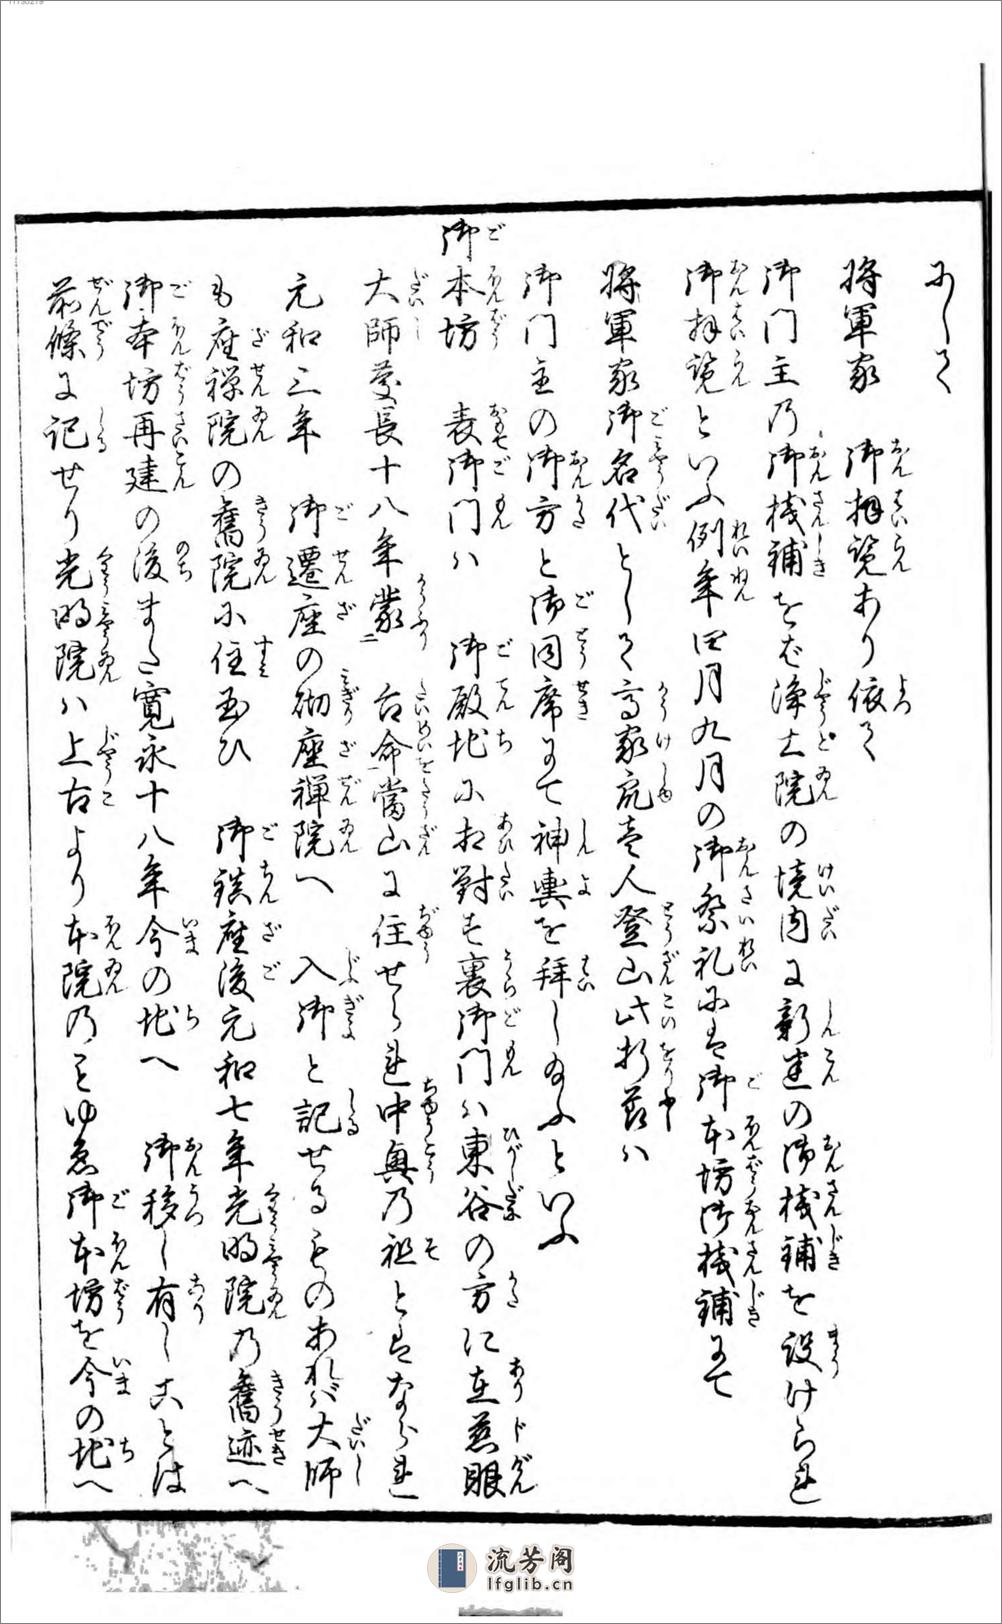 にして
将軍家　御拝覧あり依て
御門主乃御桟補をば浄土院の境内に新建の御桟補を設けられ
御拝覧といふ例年四月九月の御祭礼には御本坊御桟補にて
将軍家御名代として高家衆壱人登山此折節ハ
御門主の御方と御同席にて神輿を拝し給ふといふ
御本坊　表御門ハ　御殿地に相對す裏御門ハ東谷の方に在慈眼
大師慶長十八年蒙二　台命一當山に住せられ中興乃祖とはなられ
元和三年　御遷座の砌座禅院へ　入御と記せるものあれバ大師
も座禅院の舊院に住玉ひ　御鎮座後元和七年光明院乃舊迹へ
御本坊再建の後また寛永十八年今の地へ　御移し有しことは
前條に記せり光明院ハ上古より本院乃ことゆゑ御本坊を今の地へ
流芳阁
lfglib.cn
11730279